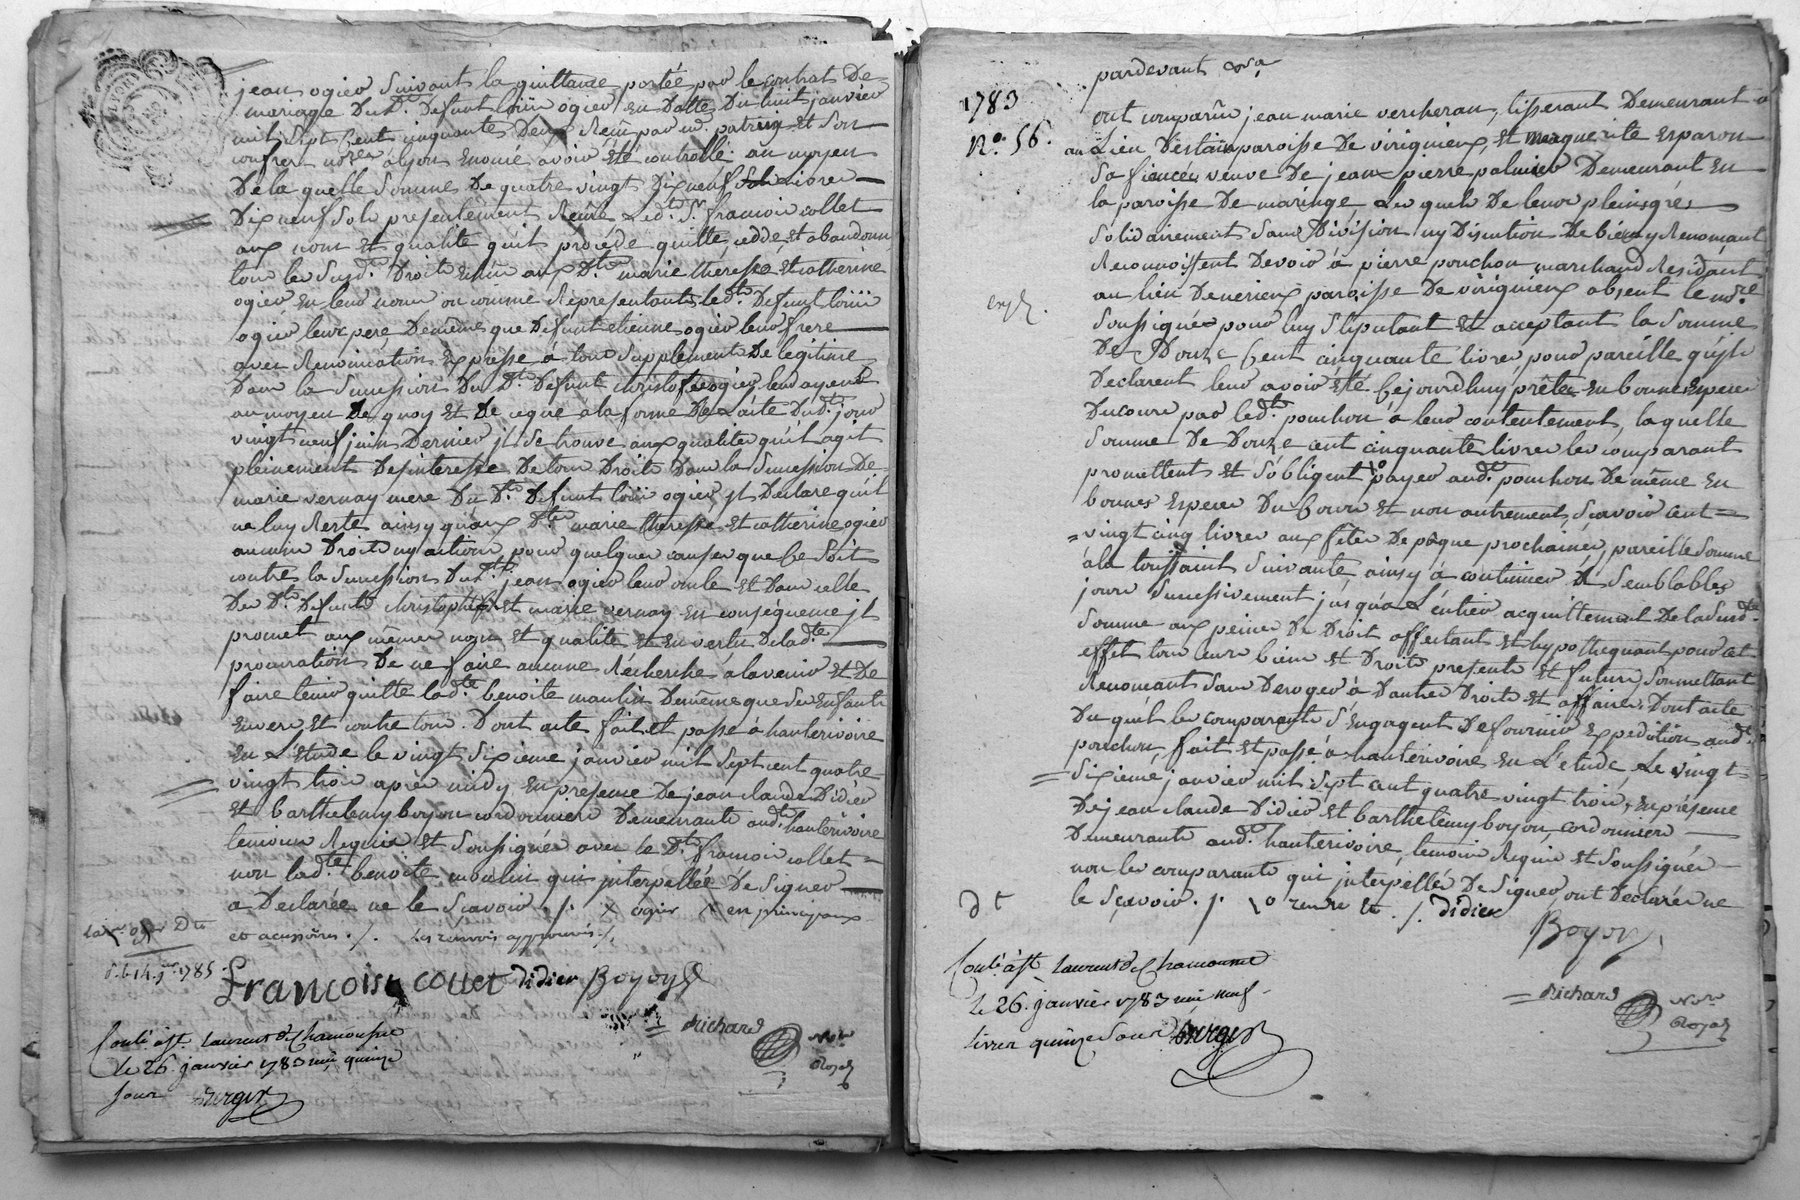 jean ogier suivant la quittance portée par le contrat De
mariage Dud.t Defunt loüii ogier en Datte Du huit janvier
mil sept Cent cinquante Deux Reçu par m.e patrin et son
confrere no.res alyon enoncé avoir été controllé au moyen
De la quelle somme De quatre vingt Dixneuf livres
Dixneuf sols presentement Reçüe led.t S.r francois collet
aux nom et qualité qu'il procéde quitte, cedde, et abandonne
tous les susd.ts Droits auxd.tes marie thérese et catherine
ogier en leur nom ou comme Representants led.t Defunt loüii
ogier leur pere, Demême que Defunt etienne ogier leur frere
avec Renonciation Expresse à tout supplement De legitime
Dans la succession Du d.t Defunt christofle ogier leur ayeul
au moyen De quoy et De ce que a la forme De L'acte Dud.t jour
vingt neuf juin Dernier jl se trouve aux qualités qu'il agit
pleinement Desinteressé De tous Droits Dans la succession De
marie vernay mere Du d.t Defunt loüii ogier, jl Declare qu'il
ne luy Reste ainsy qu'aux d.tes marie therese et catherine ogier
aucuns Droits ny actions pour quelques causes que Ce soit
contre la succession Dud.t jean ogier leur oncle et Dans celle
Des d.ts Defunts christophle et marie vernay en conséquence jl
promet aux mêmes nom et qualité et en vertu De lad.te
procuration De ne faire aucune Recherche a l'avenir et De
faire tenir quitte lad.te benoite moulin Demême que ses Enfants
envers et contre tous. Dont acte fait et passé à hauterivoire
en L'étude le vingt sixieme janvier mil sept cent quatre
vingt trois après midy, en presence De jean claude Didier
et barthelemy boyon cordonniers Demeurants aud.t hauterivoire
temoins Requis et soussignés avec le d.t francois collet
non lad.te benoite moulin qui jnterpellée De signer
a Declarée ne le sçavoir ./. x ogier x en principaux
et acessoires ./. les renvois approuvés ./.
d. le 14. 1785
Francois collet didier Boyon
Richard
No.re
Royal
Con.lé à S.t Laurent de Chamousset
le 26. janvier 1783 quinze
sous Berger
pardevant
1783
N.o 56.
ont comparus jean marie vercheran, tisserant Demeurant
au Lieu Destain paroisse De virigneux, et marguerite Esparon
sa fiancée, veuve De jean pierre palmier Demeurant en
la paroisse De maringe, Les quels De leurs pleins grés
solidairement sans Division ny Discution De biens y Renonçant
Reconnoissent Devoir à pierre ponchon marchand Residant
au lieu De paroisse De virigneux absent le no.re
Exp.
soussigné pour luy stipulant et acceptant la somme
De Douze Cent cinquante livres, pour pareille qu'jls
Declarent leur avoir été Cejourdhuy prêtée en bonnes Especes
Ducours par led.t ponchon à leur contentement, laquelle
somme De Douze cent cinquante livres les comparants
promettent et s'obligent payer aud.t ponchon De même en
bonnes Especes Du Cours et non autrement, sçavoir cent
vingt cinq livres aux fêtes De pâque prochaines, pareille somme
à la toussaint suivante, ainsy à continuer De semblables
jours successivement jusqu'a L'entier acquittement De la susd.te
somme aux peines De Droit affectant et hypothequant pour cet
effet tous leurs biens et Droits presents et futurs, soumettant
Renonçant sans Deroger à D'autres Droits et affaires. Dont acte
Du quel les comparants s'engagent De fournir Expedition aud.t
ponchon, fait et passé à hauterivoire en L'etude, Le vingt
sixieme janvier mil sept cent quatre vingt trois, en présence
De jean claude Didier et barthelemy boyon, cordonniers
Demeurants aud.t hauterivoire, temoins Requis et soussignés
non les comparants qui jnterpellés De signer, ont Declarés ne
le sçavoir ./. rendre et ./. Didier
Boyon
Richard
No.re
Royal
Con.lé à S.t Laurent de Chamousset
le 26. janvier 1783 neuf
livres quinze sous Berger